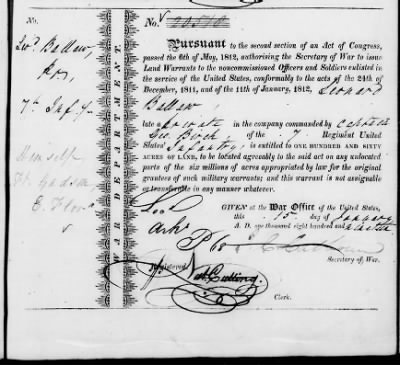 No.
No.
Leod. Ballew,
7th Inf'y.
Himself
Ft. Gadsden,
E. Flor.a
WAR DEPARTMENT.
Pursuant to the second section of an Act of Congress,
passed the 6th of May, 1812, authorising the Secretary of War to issue
Land Warrants to the noncommissioned Officers and Soldiers enlisted in
the service of the United States, conformably to the acts of the 24th of
December, 1811, and of the 11th of January, 1812, Leonard
Ballew,
late a private in the company commanded by Captain
Geo. Birch, of the 7 Regiment United
States' Infantry, is entitled to ONE HUNDRED AND SIXTY
ACRES OF LAND, to be located agreeably to the said act on any unlocated
parts of the six millions of acres appropriated by law for the original
grantees of such military warrants; and this warrant is not assignable
or transferable in any manner whatever.
GIVEN at the War Office of the United States,
this 15. day of January
A. D. one thousand eight hundred and
Secretary of War.
Registered
Nat. Cutting.
Clerk.